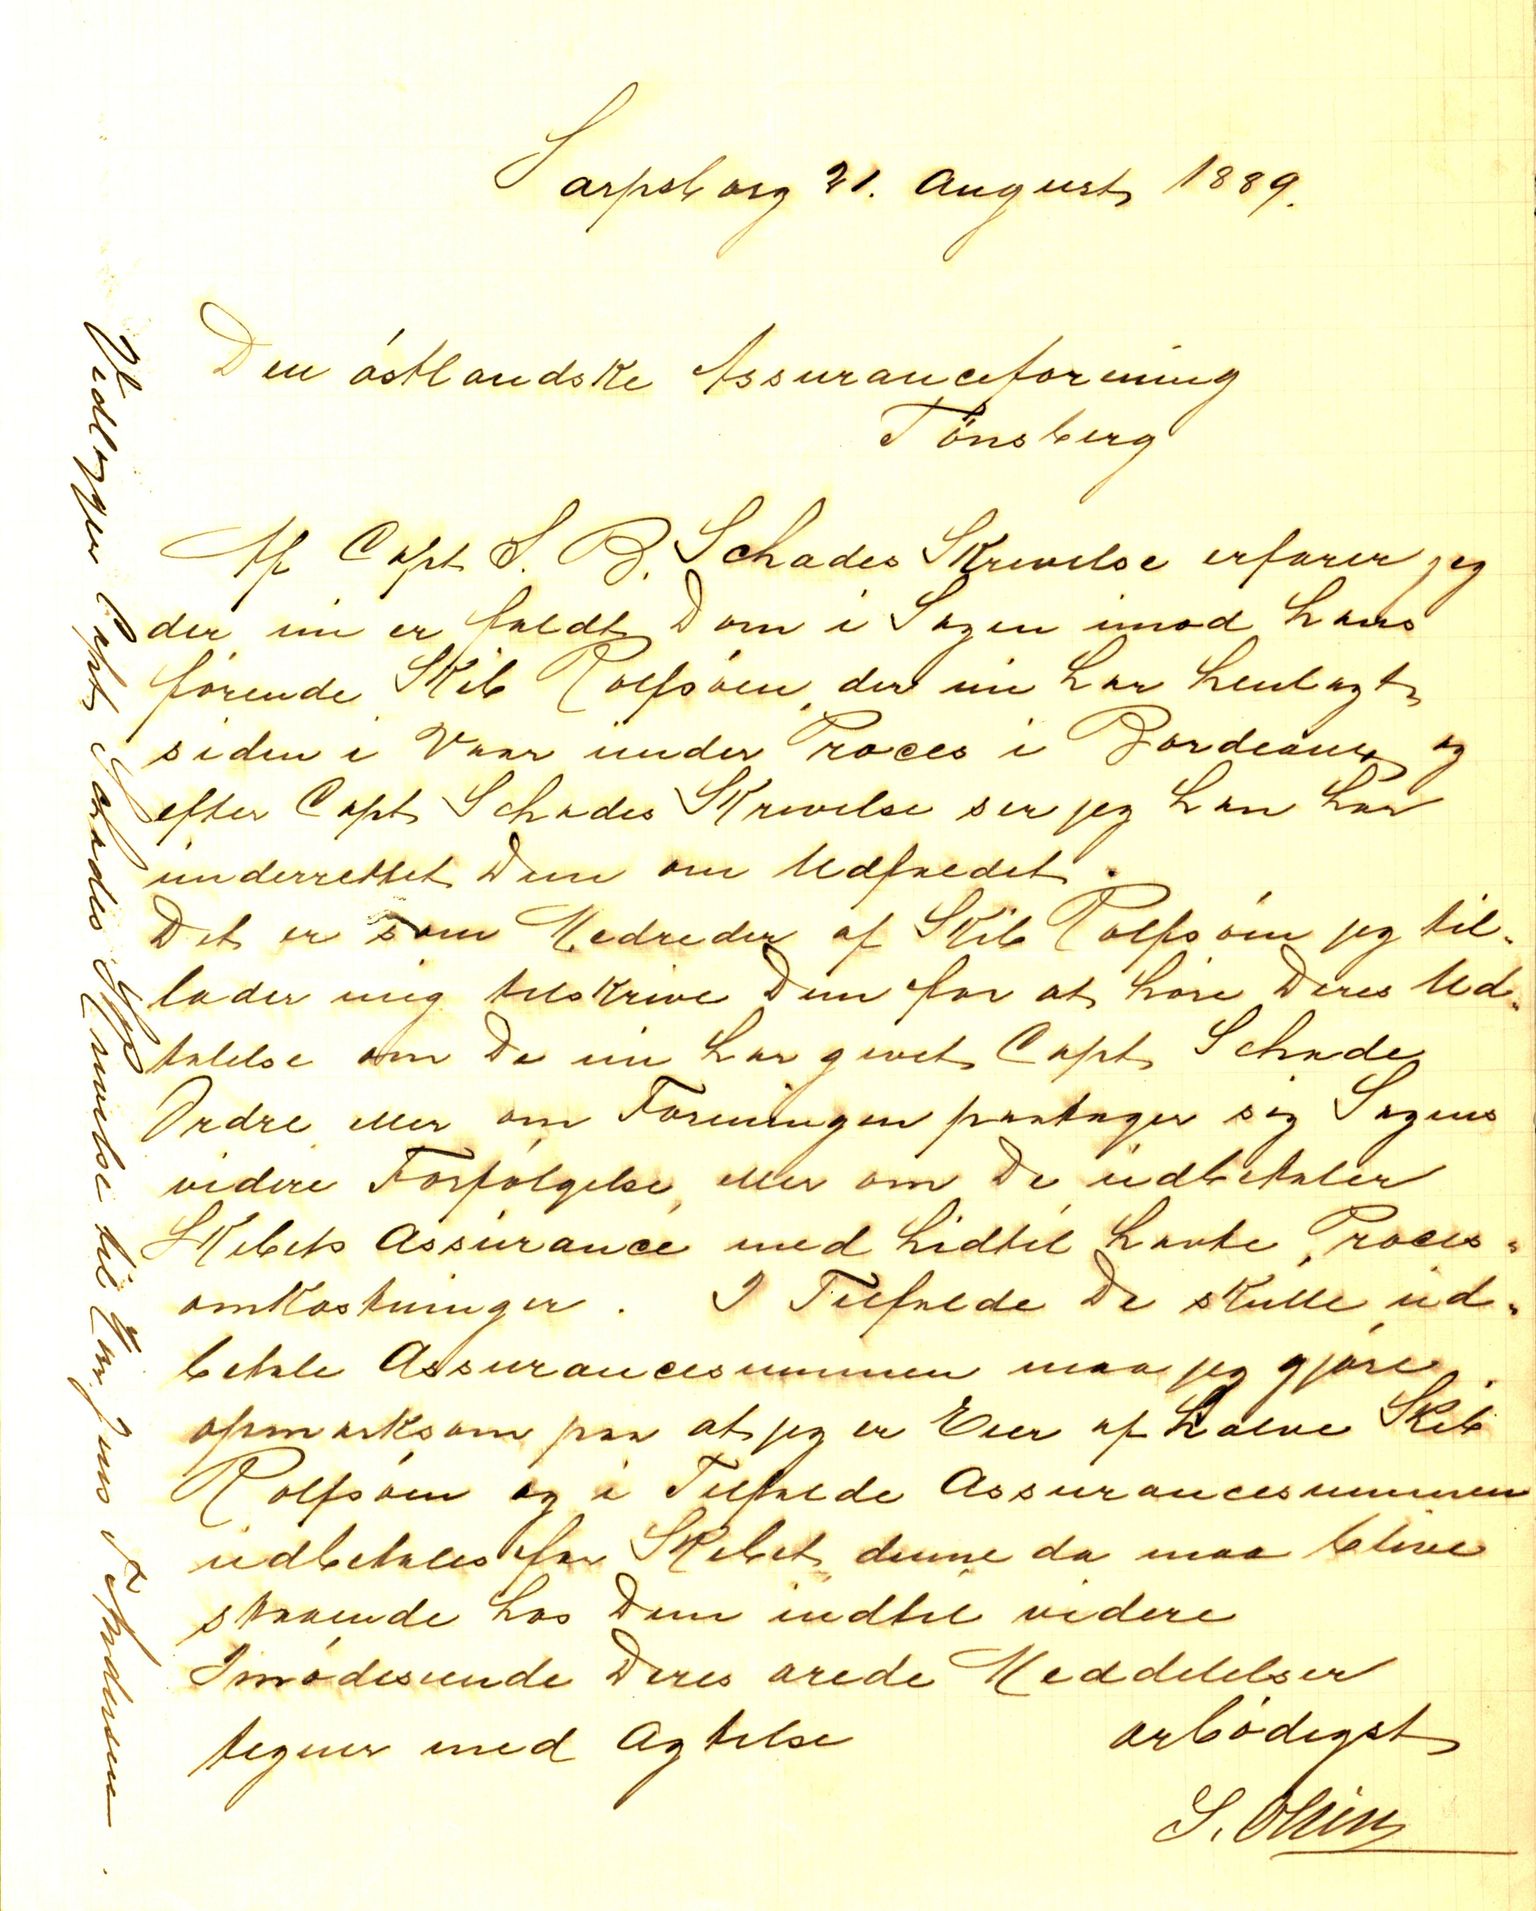 Sarpsborg 21. August 1889.
Den östlandske Assuranceforening
Tönsberg
Af Capt S. B. Schades Skrivelse erfarer jeg
der nu er faldt Dom i Sagen imod hans
förende Skib Rolfsöen, der nu har henlagt
siden i Vaar under Proces i Bordeaux og
efter Capt Schades Skrivelse ser jeg han har
underrettet Dem om Udfaldet.
Det er som Medreder af Skib Rolfsöen jeg til-
lader mig tilskrive Dem for at höre Deres Ud-
talelse om De nu har givet Capt Schade
Ordre eller om Foreningen paatager sig Sagens
videre Forfölgelse, eller om De udbetaler
Skibets Assurance med hidtil havte Proces-
omkostninger. I Tilfælde De skulle ud-
betale Assurancesummen maa jeg gjöre
opmærksom paa at jeg er Eier af halve Skib
Rolfsöen og i Tilfælde Assurancesummen
udbetales for Skibet, denne da maa blive
staaende hos Dem indtil videre
Imödeseende Deres ærede Meddelelser
tegner med Agtelse ærbödigst
S.
Vedlegger Capt Schades Skrivelse til Jens Andersen.